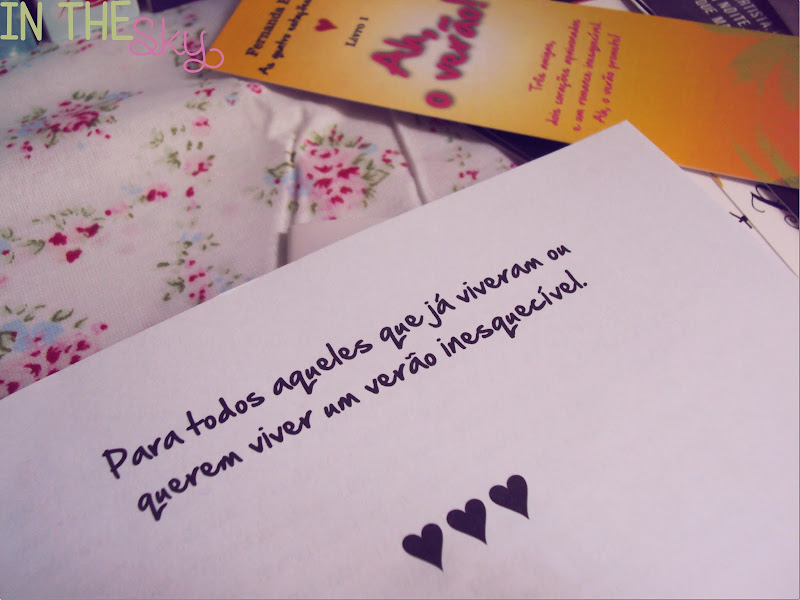 IN THE
Sky
Fernanda
As quatro estações
Livro 1
Ah,
o verão!
Três amigas,
dois corações apaixonados
e um romance inesquecível.
Ah, o verão promete!
NOITE
QUE
Para todos aqueles que já viveram ou
querem viver um verão inesquecível.